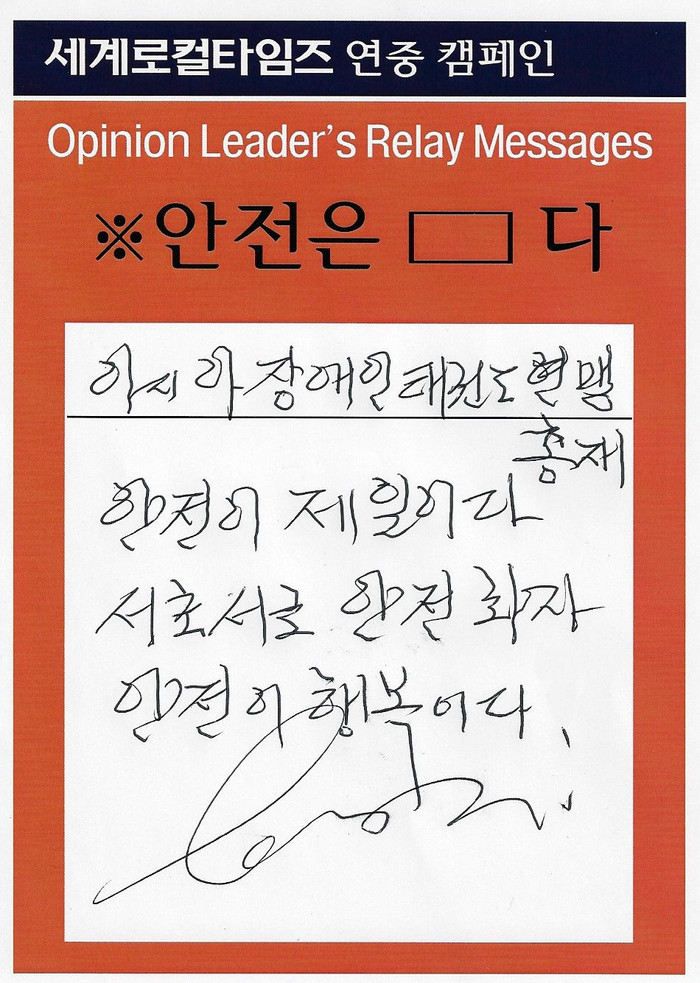 세계로컬타임즈 연중 캠페인
Opinion Leader's Relay Messages
※안전은 ▭ 다
아시아 장애인 태권도 연맹
총재
안전이 제일이다
서로서로 안전 하자
안전이 행복이다